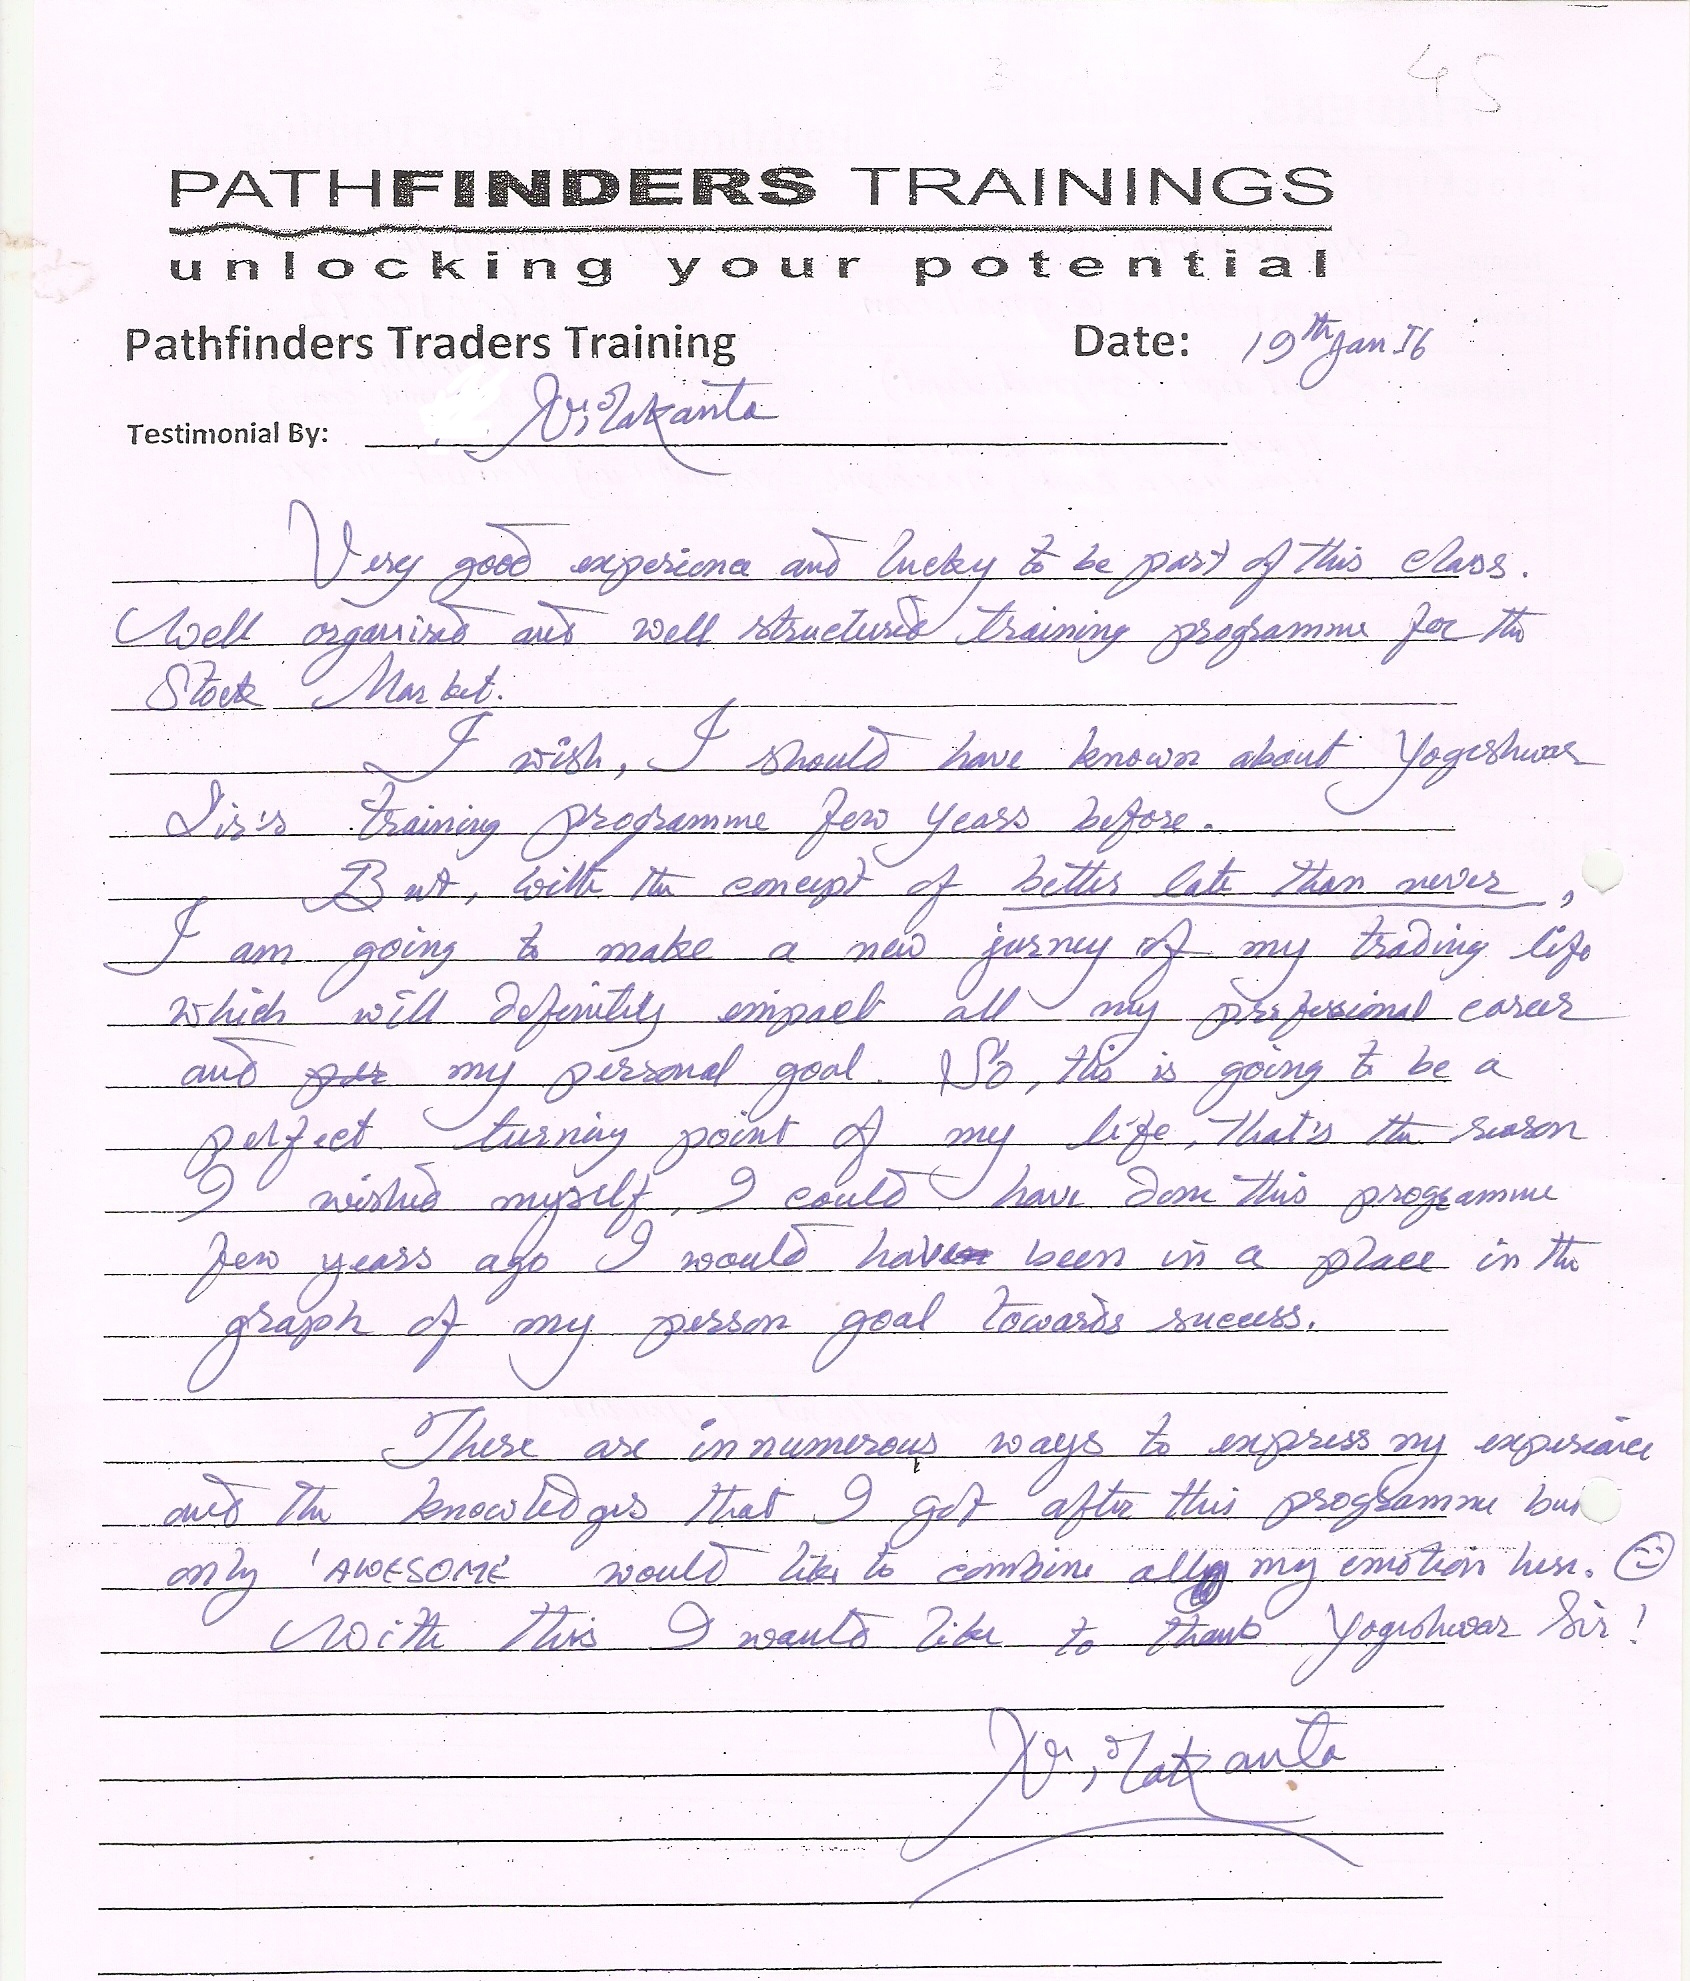 45
PATHFINDERS TRAININGS
unlocking your potential
Pathfinders Traders Training Date: 19th Jan 16
Testimonial By:
Very good experience and lucky to be part of this class.
Well organised and well structured training programme for the
Stock Market.
I wish, I should have known about Yogeshwar
Sir's training programme few years before.
But, with the concept of better late than never,
I am going to make a new jurney of my trading life
which will definitely empact all my professional career
and my personal goal. So, this is going to be a
perfect turning point of my life, that's the reason
I wished myself, I could have done this programme
few years ago I would have been in a place in the
graph of my person goal towards success.
There are innumerous ways to express my experience
and the knowledges that I got after this programme but
only 'AWESOME' would like to combine all my emotion here.
With this I would like to thank Yogeshwar Sir!